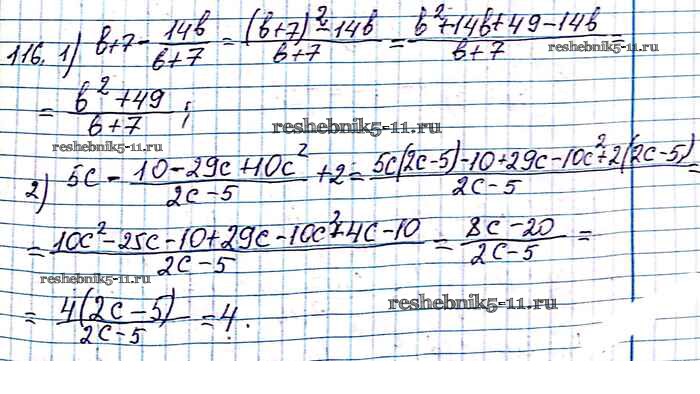 116. 1) в+7 - 14в/(в+7) = ((в+7)² - 14в)/(в+7) = (в²+14в+49-14в)/(в+7) =
reshebnik5-11.ru
= (в²+49)/(в+7) ;
reshebnik5-11.ru
reshebnik5-11.ru
2) 5c - (10-29c+10c²)/(2c-5) + 2 = (5c(2c-5)-10+29c-10c²+2(2c-5))/(2c-5) =
= (10c²-25c-10+29c-10c²+4c-10)/(2c-5) = (8c-20)/(2c-5) =
reshebnik5-11.ru
= 4(2c-5)/(2c-5) = 4.
reshebnik5-11.ru